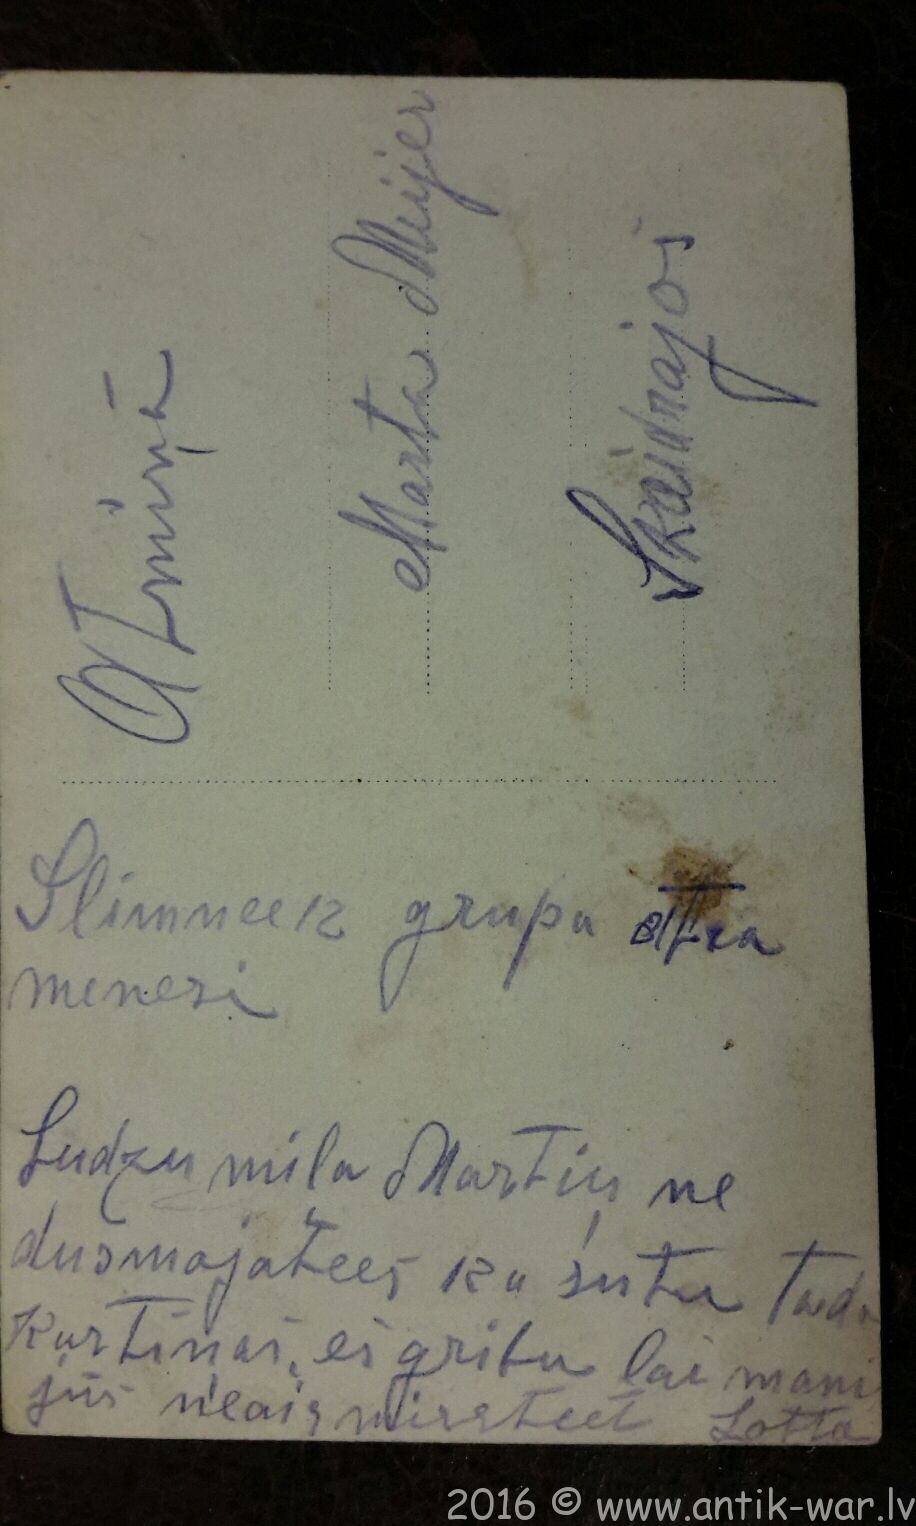 Marta Meijer
Skaidrajos
Slimneek grupa
menesi
Ludzu mila Martiņ ne
dusmajatees ka sutu tada
Kartinas, es gribu lai mani
jūs neaismirsteet Lotta
2016 © www.antik-war.lv